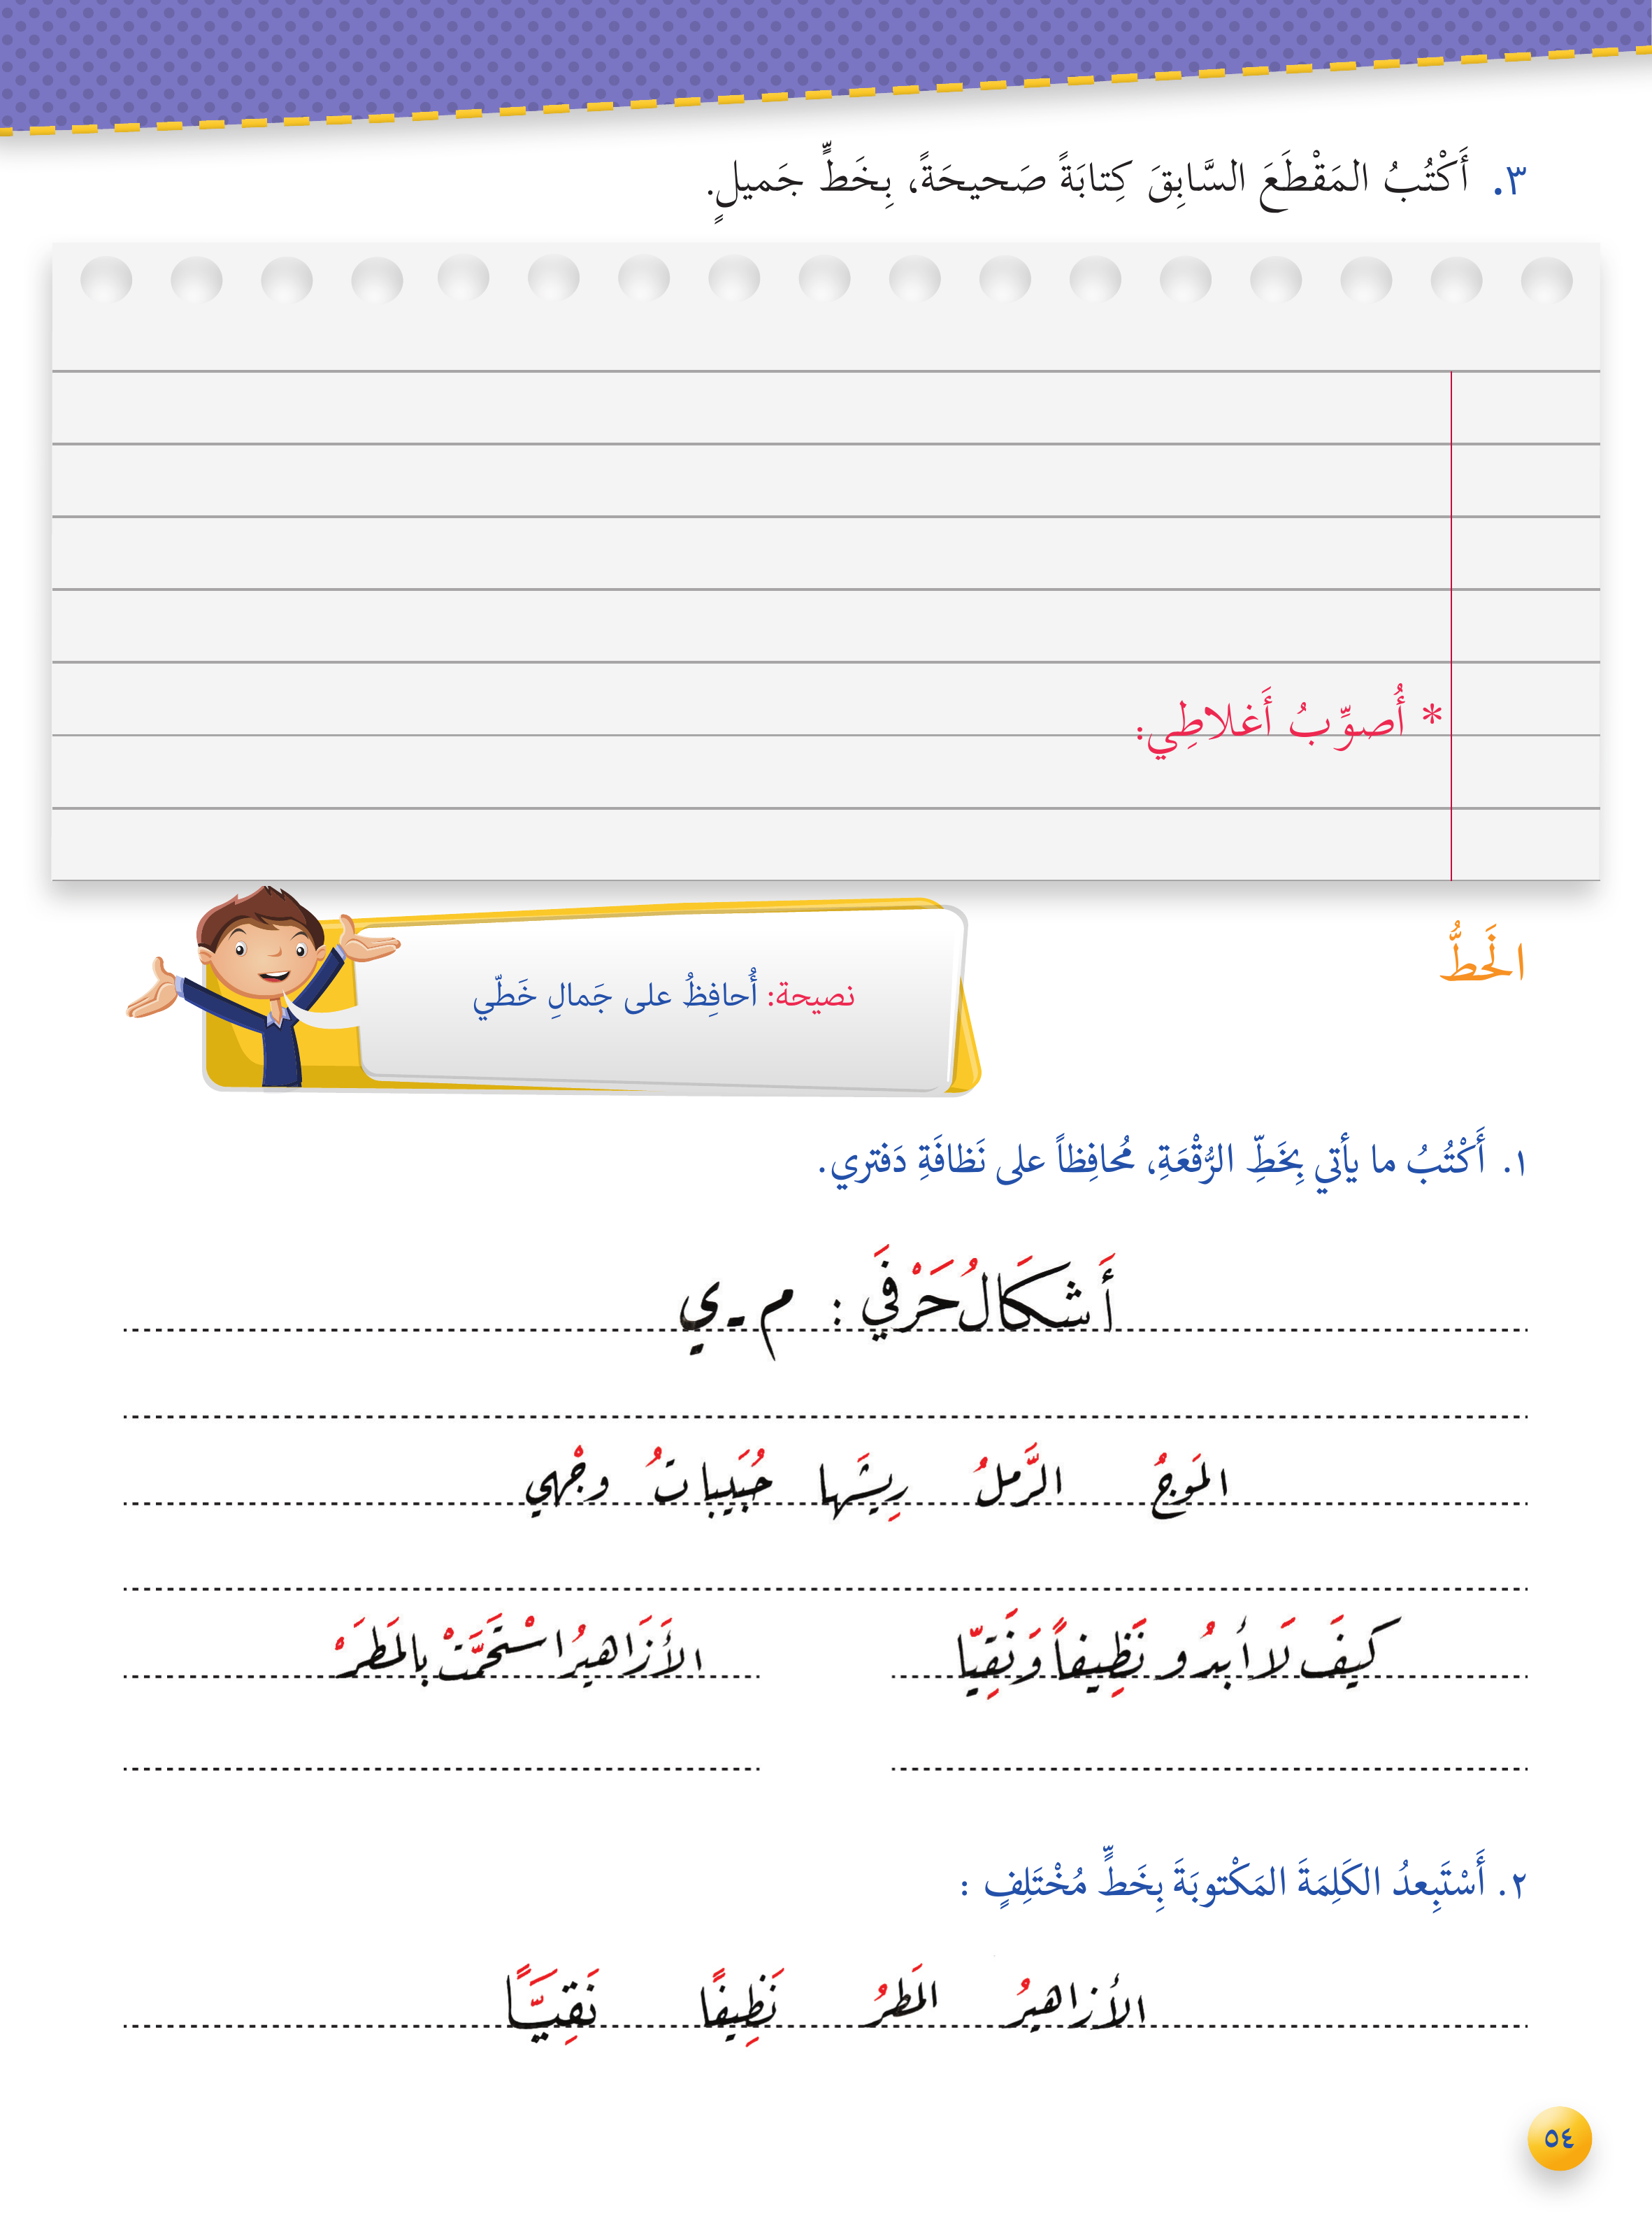 ٣. أَكْتُبُ المَقْطَعَ السَّابِقَ كِتابَةً صَحيحَةً، بِخَطٍّ جَميلٍ.
* أُصوِّبُ أَغلاطِي:
الخَطُّ
نصيحة: أُحافِظُ على جَمالِ خَطّي
١. أَكْتُبُ ما يأتي بِخَطِّ الرُّقْعَةِ، مُحافِظاً على نَظافَةِ دَفتري.
أَشكَالُ حَرْفَي : م - ي
المَوجُ الرَّملُ رِيشَها حُبَيباتُ وجْهي
كيفَ لَا أبدُو نَظِيفاً وَنَقِيّا
الأَزَاهيرُ اسْتَحَمَّتْ بالمَطَرْ
٢. أَسْتَبِعدُ الكَلِمَةَ المَكْتوبَةَ بِخَطٍّ مُخْتَلِفٍ :
الأزاهيرُ المَطرُ نَظِيفًا نَقِيَّاً
٥٤